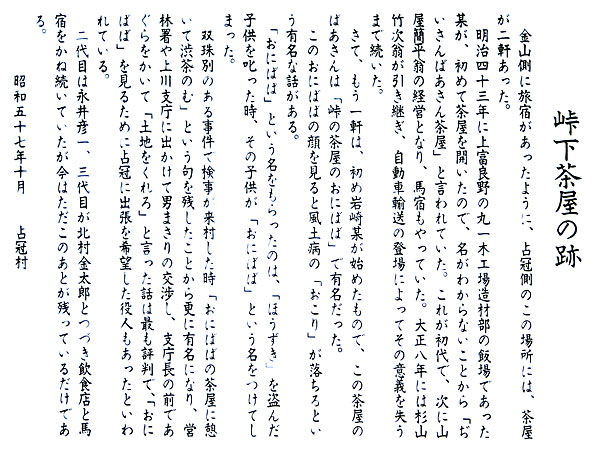 峠下茶屋の跡
金山側に旅宿があったように、占冠側のこの場所には、茶屋
が二軒あった。
明治四十三年に上富良野の丸一木工場造材部の飯場であった
某が、初めて茶屋を開いたので、名がわからないことから「ぢ
いさんばあさん茶屋」と言われていた。これが初代で、次に山
屋簡平翁の経営となり、馬宿もやっていた。大正八年には杉山
竹次翁が引き継ぎ、自動車輸送の登場によってその意義を失う
まで続いた。
さて、もう一軒は、初め岩崎某が始めたもので、この茶屋の
ばあさんは「峠の茶屋のおにばば」で有名だった。
このおにばばの顔を見ると風土病の「おこり」が落ちるとい
う有名な話がある。
「おにばば」という名をもらったのは、「ほうずき」を盗んだ
子供を叱った時、その子供が「おにばば」という名をつけてし
まった。
双珠別のある事件で検事が来村した時「おにばばの茶屋に憩
いて渋茶のむ」という句を残したことから更に有名になり、営
林署や上川支庁に出かけて男まさりの交渉し、支庁長の前であ
ぐらをかいて「土地をくれろ」と言った話は最も評判で、「おに
ばば」を見るために占冠に出張を希望した役人もあったといわ
れている。
二代目は永井彦一、三代目が北村金太郎とつづき飲食店と馬
宿をかね続いていたが今はただこのあとが残っているだけであ
る。
昭和五十七年十月 占冠村